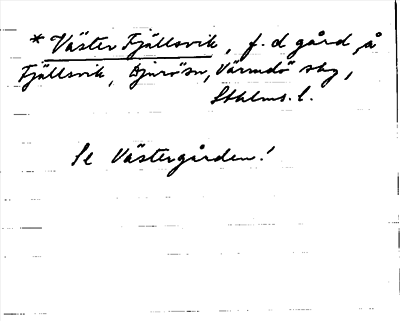 * Väster Fjällsvik, f.d gård å
Fjällsvik, Djurösn, Värmdö sky,
Sthlms. l.
Se Västergården!